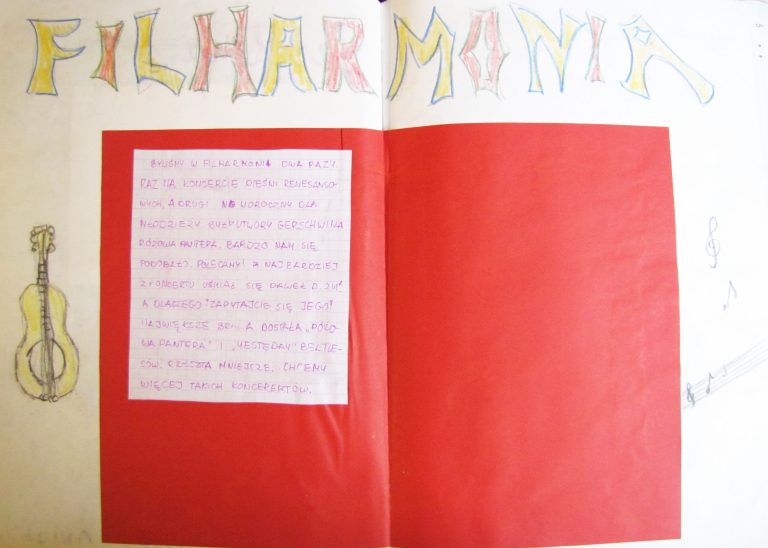 FILHARMONIA
BYLIŚMY W FILHARMONII DWA RAZY
RAZ NA KONCERCIE PIEŚNI RENESANSO-
WYCH, A DRUGI NOWOROCZNY DLA
MŁODZIEŻY BYŁY UTWORY GERSCHWINA
RÓŻOWA PANTERA. BARDZO NAM SIĘ
PODOBAŁO. POLECAMY! NAJBARDZIEJ
Z KONCERTU UŚMIAŁ SIĘ PAWEŁ D.
A DLACZEGO "ZAPYTAJCIE SIĘ JEGO"
NAJWIĘKSZE DOSTAŁA "RÓŻO-
WA PANTERA" I "YESTEDAY" BEATLE-
SÓW. RZESZTA MNIEJSZE. CHCEMY
WIĘCEJ TAKICH KONCERERTÓW.